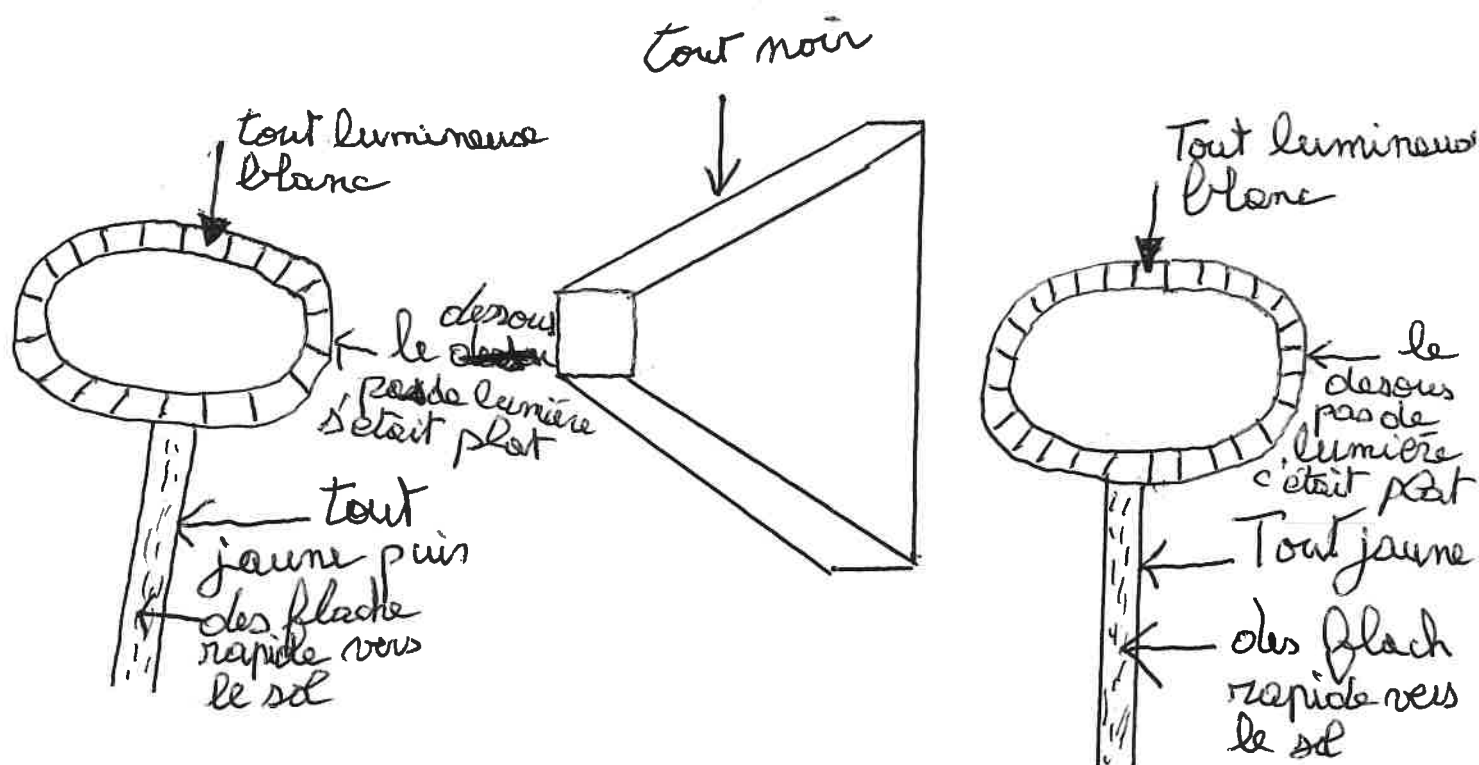 tout noir
tout lumineuse
blanc
le dessous
pas de lumière
s'était plat
tout
jaune puis
des flache
rapide vers
le sol
Tout lumineus
blanc
le
desous
pas de
lumière
c'était plat
Tout jaune
des flach
rapide vers
le sol